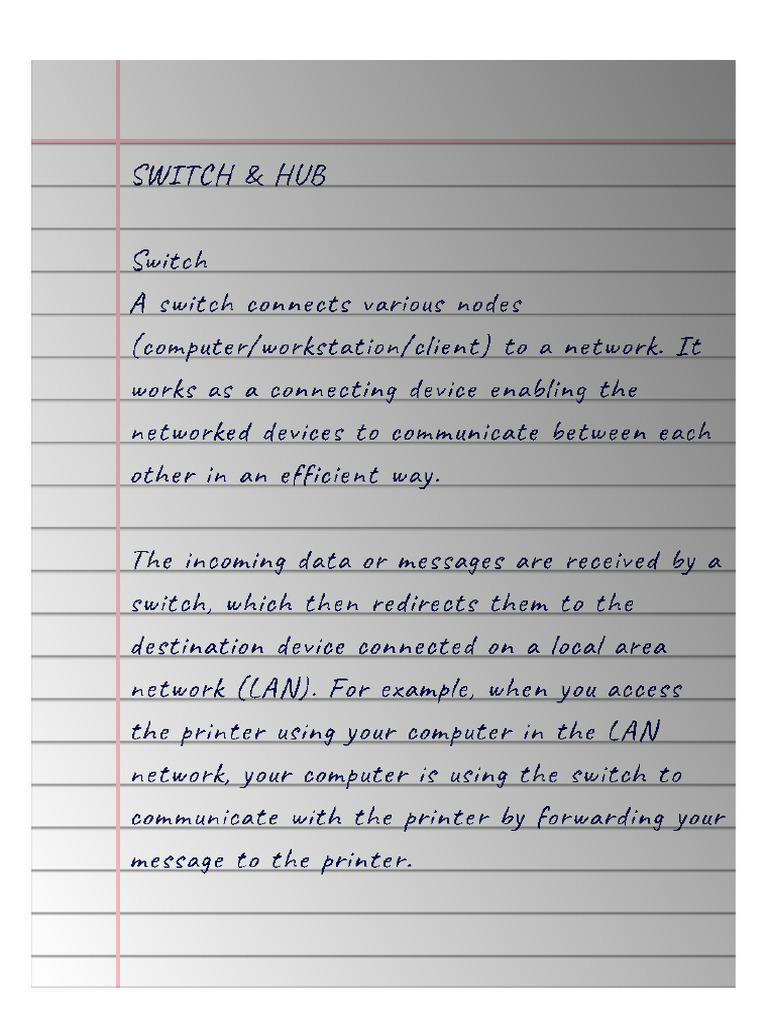 SWITCH & HUB
Switch
A switch connects various nodes
(computer/workstation/client) to a network. It
works as a connecting device enabling the
networked devices to communicate between each
other in an efficient way.
The incoming data or messages are received by a
switch, which then redirects them to the
destination device connected on a local area
network (LAN). For example, when you access
the printer using your computer in the LAN
network, your computer is using the switch to
communicate with the printer by forwarding your
message to the printer.